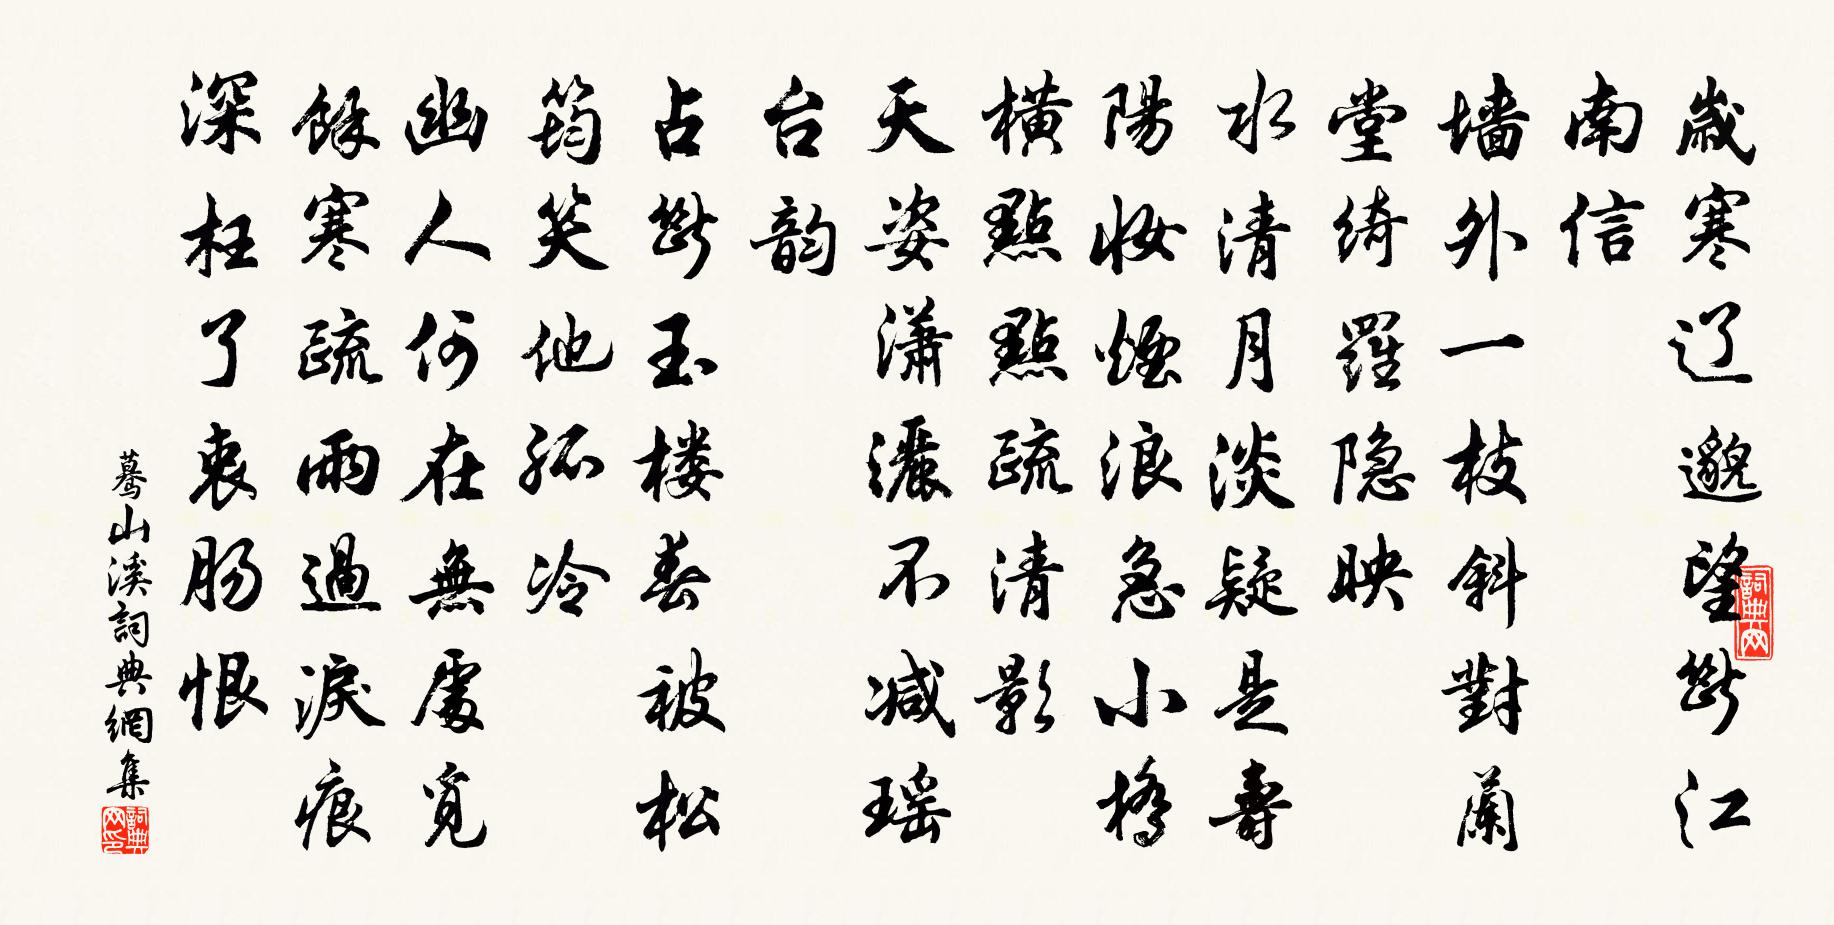 歳寒辽邈望斷江
南信
墙外一枝斜對蘭
堂綺羅隐映
水清月淡疑是壽
陽妝煙浪急小橋
橫點點疏清影
天姿潇灑不减瑶
台韵
占斷玉楼春被松
筠笑他孤冷
幽人何在無處覓
餘寒疏雨過淚痕
深枉了衷肠恨
蓦山溪詞典網集
詞典网
詞典网印